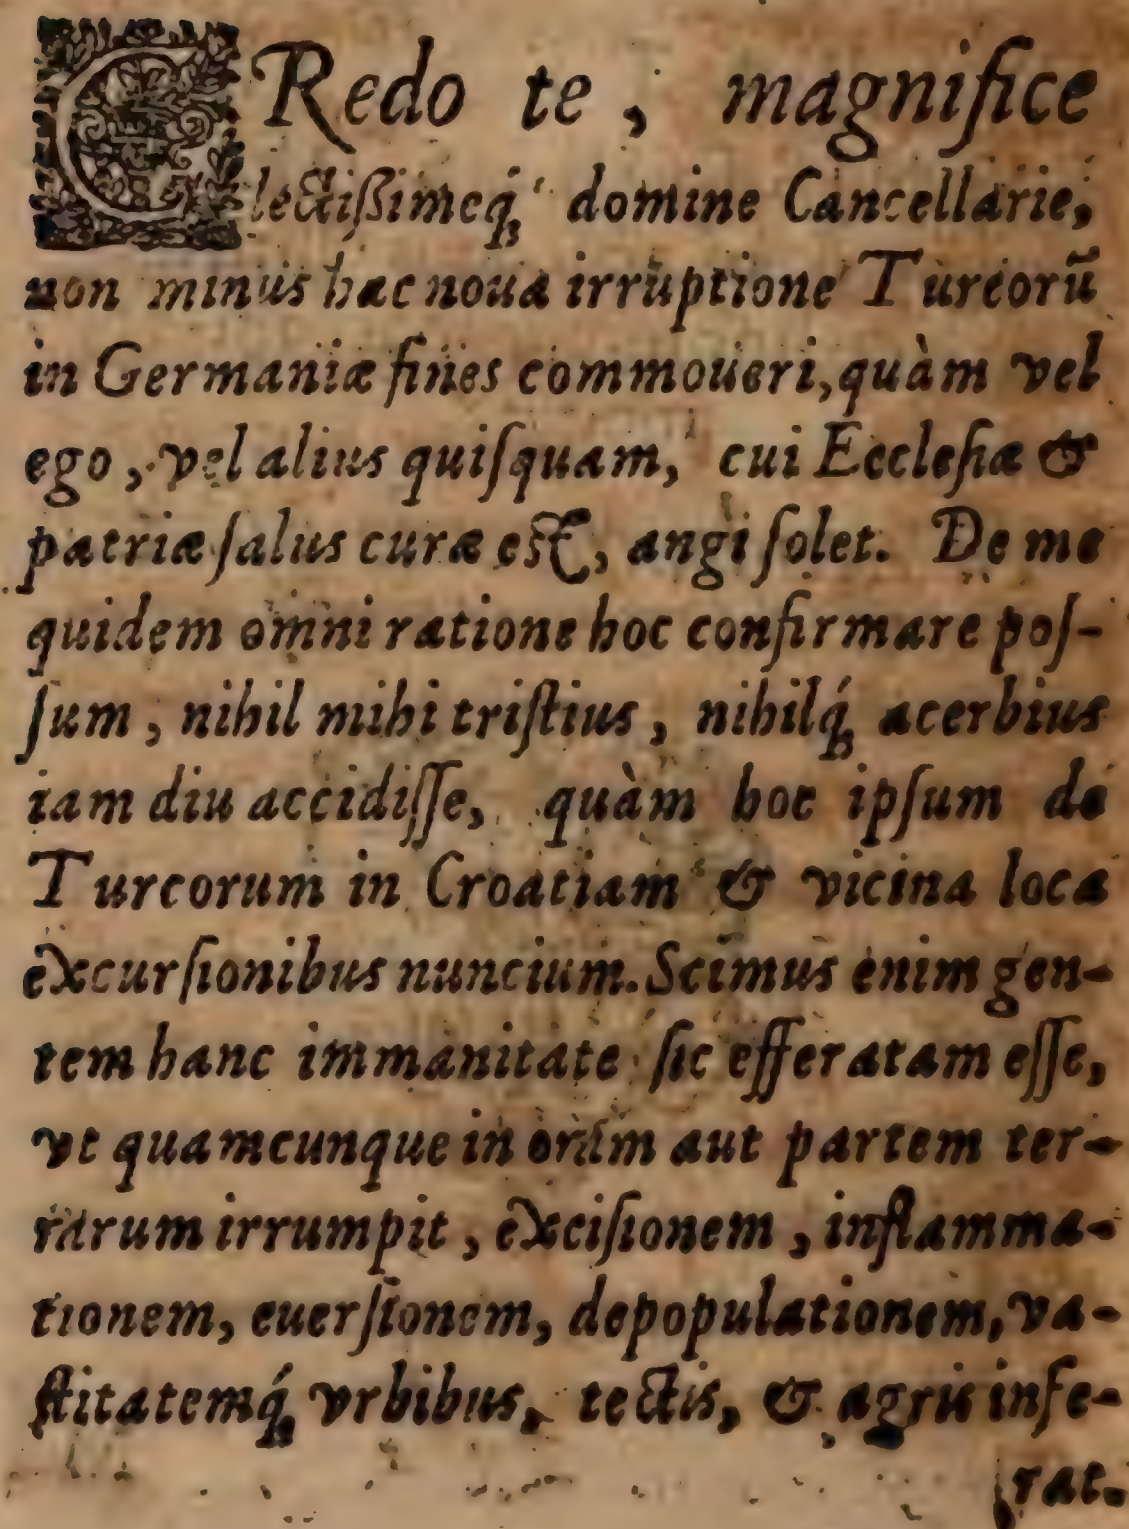 CRedo te, magnifice
lectißimeq́; domine Cancellarie,
non minus hac noua irruptione Turcorũ
in Germaniæ fines commoueri, quàm vel
ego, vel alius quiſquam, cui Eccleſiæ &
patriæ ſalus curæ eſt, angi ſolet. De me
quidem omni ratione hoc confirmare poſ-
ſum, nihil mihi triſtius, nihilq́; acerbius
iam diu accidiſſe, quàm hoc ipſum de
Turcorum in Croatiam & vicina loca
excurſionibus nuncium. Scimus enim gen-
tem hanc immanitate ſic efferatam eſſe,
vt quamcunque in oram aut partem ter-
rarum irrumpit, exciſionem, inflamma-
tionem, euerſionem, depopulationem, va-
ſtitatemq́; vrbibus, tectis, & agris infe-
rat.